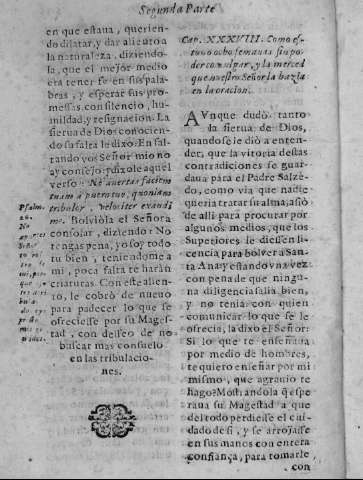 Segunda Parte
en que estaua, querien-
do dilatar, y dar aliento a
la naturaleza, diziendo-
la, que el mejor medio
era tenerse en sus pala-
bras, y esperar sus pro-
messas con silencio, hu-
mildad, y resignacion. La
sierua de Dios conocien-
do su falta le dixo: En fal-
tando vos Señor mio no
ay consejo: puzole aquel
verso: Ne auertas faciem
tuam a puero tuo, quoniam
tribulor, velociter exaudi
me. Bolviòla el Señor a
consolar, diziendo: No
tengas pena, yo soy todo
tu bien, teniendome a
mi, poca falta te haràn
criaturas. Con este alien-
to, le cobrò de nueuo
para padecer lo que se
ofreciesse por su Mages-
tad, con desseo de no
buscar mas consuelo
en las tribulacio-
nes.
Psalm.
Señor
Cap. XXXVIII. Como es-
tuuo ocho semanas sin po-
der comulgar, y la merced
que nuestro Señor la hazia
en la oracion.
AVnque dudò tanto
la sierua de Dios,
quando se le diò a enten-
der, que la vitoria destas
contradiciones se guar-
daua para el Padre Salze-
do, como via que nadie
queria tratar su alma, assiò
de alli para procurar por
algunos medios, que los
Superiores le diessen li-
cencia para bolver a San-
ta Ana y estando vna vez
con pena de que ningu-
na diligencia salia bien,
y no tenia con quien
comunicar lo que se le
ofrecia, la dixo el Señor:
Si lo que te enseñaua
por medio de hombres,
te quiero enseñar por mi
mismo, que agrauio te
hago? Mostrandola q̃ espe-
raua su Magestad a que
del todo perdiesse el cui-
dado de si, y se arrojasse
en sus manos con entera
confiança, para tomarle
con